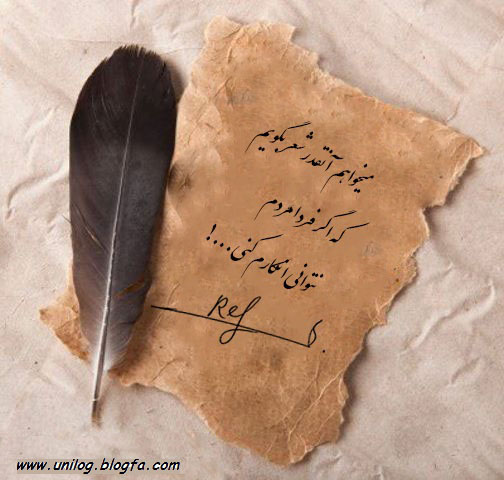 میخواهم آنقدر شعر بگویم
که اگر فردا مردم
نتوانی انکارم کنی....!
Ref
www.unilog.blogfa.com